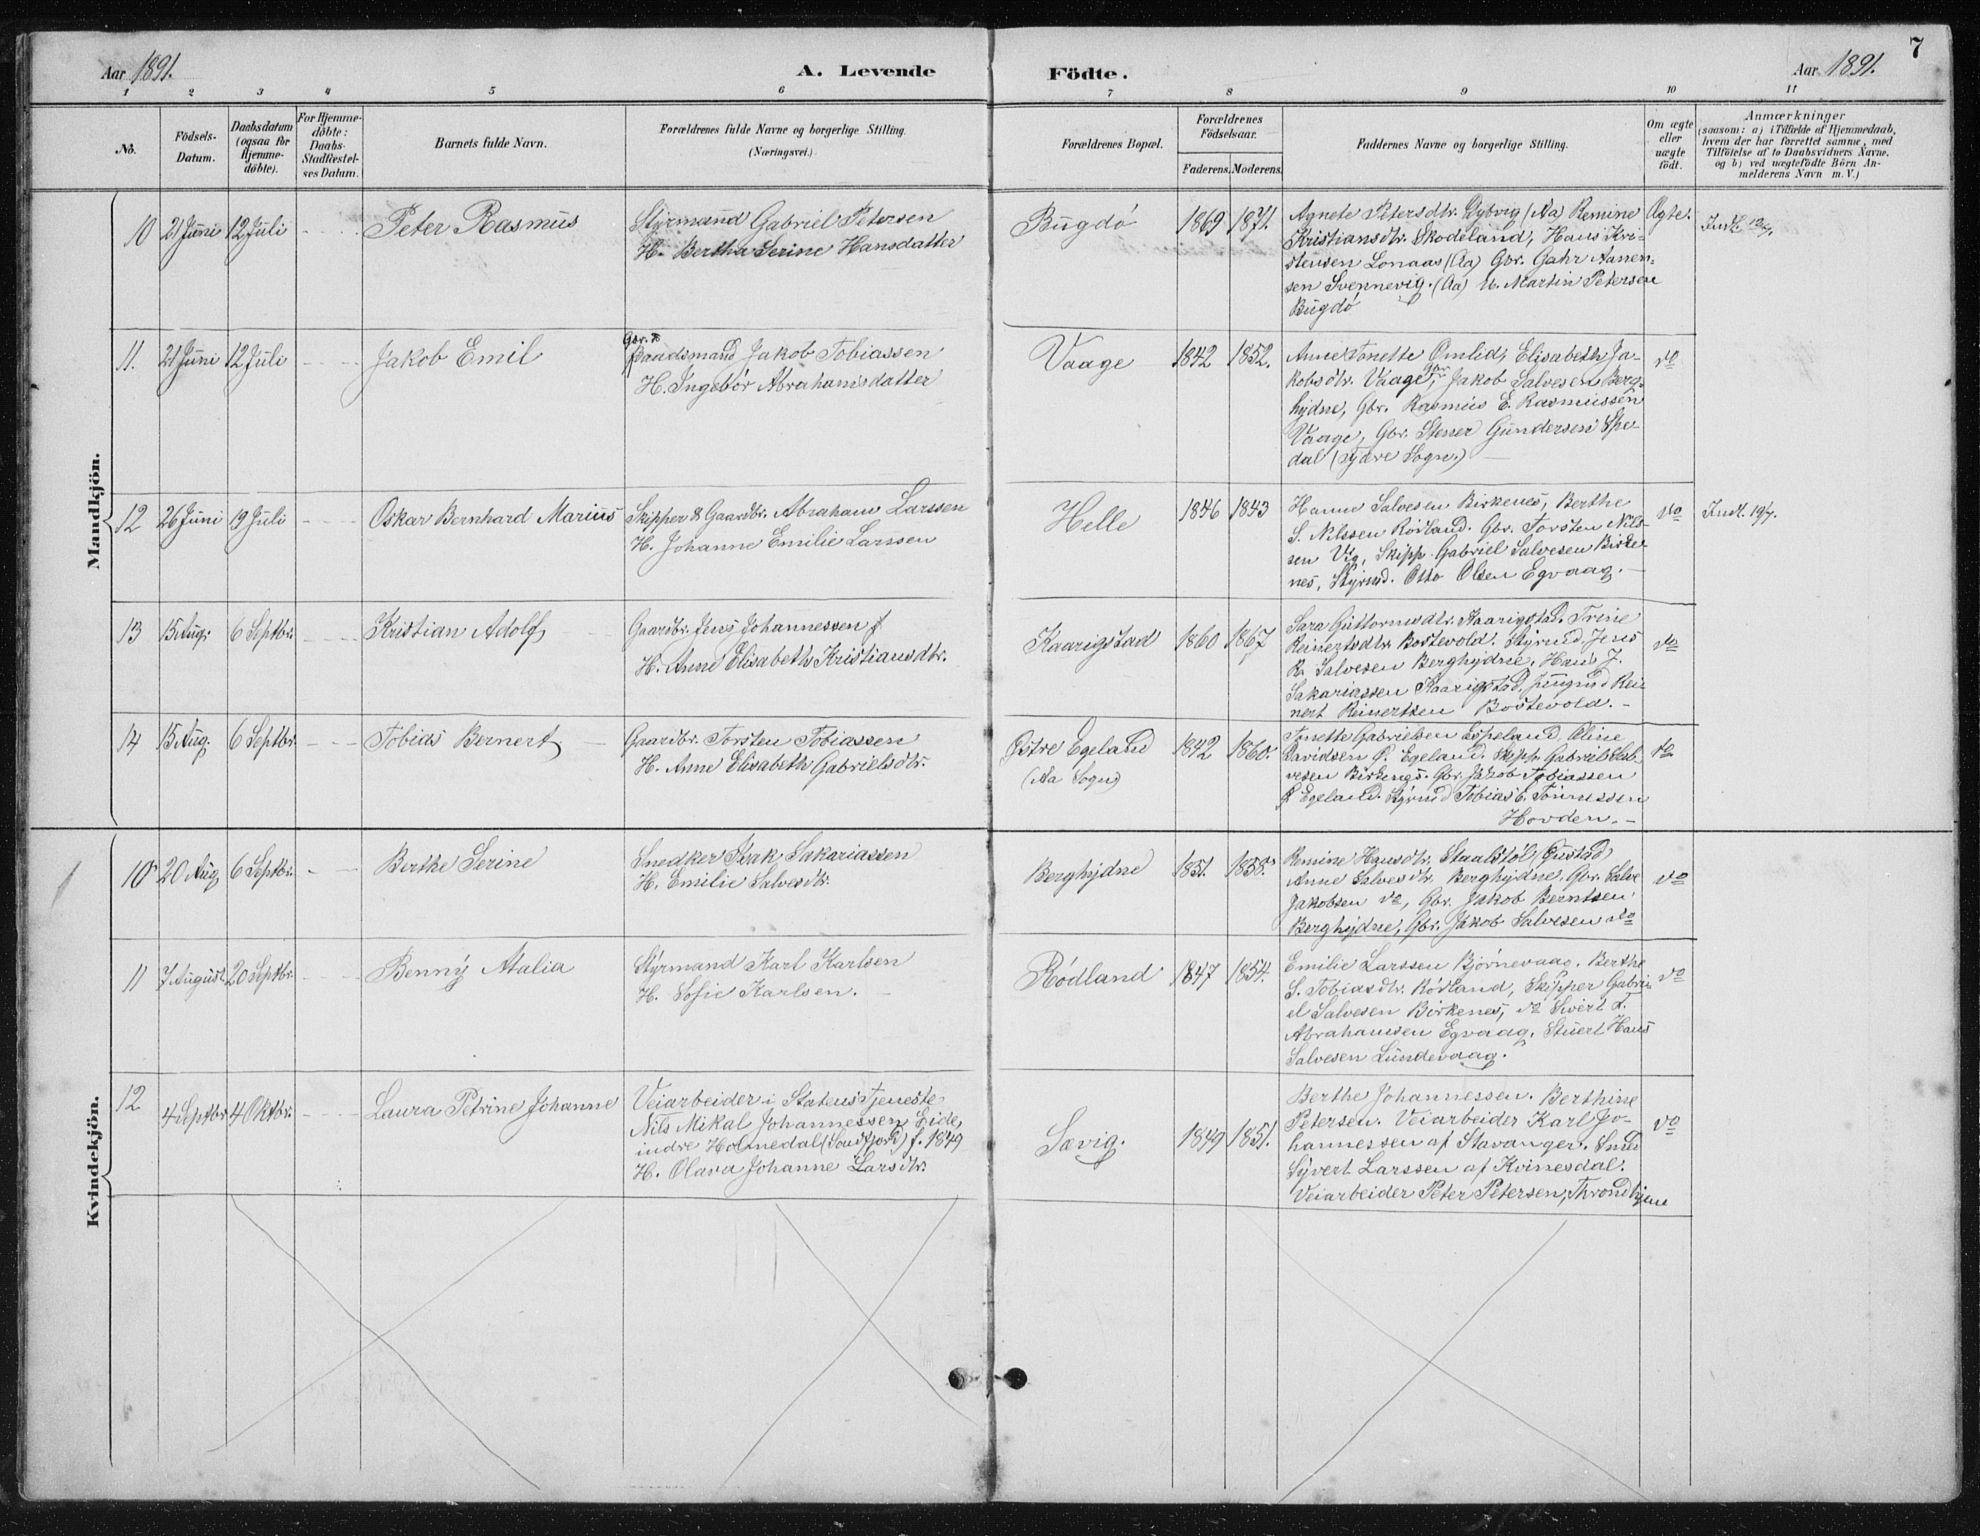 Aar 1891. A. Levende Födte. Aar 1891. 7
1 2 3 4 5 6 7 8 9 10 11
No.
Födsels-
Datum.
Daabsdatum
(ogsaa for
Hjemme-
döbte).
For Hjemme-
döbte:
Daabs-
Stadfæstel-
ses Datum.
Barnets fulde Navn.
Forældrenes fulde Navne og borgerlige Stilling.
(Næringsvei.)
Forældrenes Bopæl.
Forældrenes
Födselsaar.
Faderens. Moderens.
Faddernes Navne og borgerlige Stilling.
Om ægte
eller
uægte
födt.
Anmærkninger
(saasom: a) i Tilfælde af Hjemmedaab,
hvem der har forrettet samme, med
Tilföielse af to Daabsvidners Navne,
og b) ved uægtefödte Börn An-
melderens Navn m. V.)
Mandkjön.
10 21 Juni 12 Juli Peter Rasmus
Styrmand Gabriel Petersen
H. Bertha Serine Hansdatter
Bugdø 1869 1871.
Agnete Petersdtr. Dybvig (Aa) Remine
Kristiansdtr. Skodeland, Hans Kri-
stensen Lonaas (Aa) Gbr. Gahr Aanen-
sen Svennevig. (Aa) U. Martin Petersen
Bugdø
Ægte.
Indk. 12/7.
11. 21 Juni 12 Juli Jakob Emil
Gbr. &
Baadsmand Jakob Tobiassen
H. Ingebór Abrahamsdatter
Vaage 1842 1852.
Anne Tonette Omlid, Elisabeth Ja-
kobsdtr. Vaage, Gbr. Jakob Salvesen Berg-
hydne, Gbr. Rasmus E. Rasmussen
Vaage, Gbr. Stener Gundersen Spe-
dal (sydre Sogn.)
do
12 26 Juni 19 Juli Oskar Bernhard Marius
Skipper & Gaardbr. Abraham Larssen
H. Johanne Emilie Larssen
Helle 1846 1843
Hanne Salvesen Birkenes, Berthe
S. Nilssen Rødland. Gbr. Torsten Nils-
sen Vig, Skipp. Gabriel Salvesen Birke-
nes, Styrmd. Otto Olsen Egvaag.
do
Indk. 19/7.
13 15 Aug. 6 Septbr. Kristian Adolf
Gaardbr. Jens Johannessen
H. Anne Elisabeth Kristiansdtr.
Kaarigstad 1860 1867
Sara Guttormsdtr. Kaarigstad. Trine
Reinertsdtr. Bostevold. Styrmd. Jens
R. Salvesen Berghydne. Hans J.
Sakariassen Kaarigstad, Jungmd Rei-
nert Reinertsen Bostevold.
do
14 15 Aug. 6 Septbr. Tobias Bernert
Gaardbr. Torsten Tobiassen
H. Anne Elisabeth Gabrielsdtr.
Østre Egeland
(Aa Sogn)
1842 1860.
Tonette Gabrielsen Espeland. Oline
Davidsen Ø. Egeland. Skipp. Gabriel Sal-
vesen Birkenes. Gbr. Jakob Tobiassen
Ø. Egeland. Styrmd Tobias C. Tønnessen
Hovden.
do
Kvindekjön.
10 20 Aug 6 Septbr. Berthe Serine
Snedker Isak Sakariassen
H. Emilie Salvesdtr.
Berghydne 1851. 1858.
Remine Hansdtr. Staalstøl (Gustad)
Anne Salvesdtr. Berghydne, Gbr. Salve
Jakobsen do, Gbr. Jakob Berntsen
Berghydne, Gbr. Jakob Salvesen do
do
11 7 August 20 Septbr. Benny Atalia
Styrmand Karl Karlsen
H. Sofie Karlsen.
Rødland 1847 1854.
Emilie Larssen Bjørnevaag. Berthe
S. Tobiasdtr. Rødland, Skipper Gabri-
el Salvesen Birkenes, do Sivert T.
Abrahamsen Egvaag. Stuert Hans
Salvesen Lundevaag.
do
12 4 Septbr 4 Oktbr. Laura Petrine Johanne
Veiarbeider i Statens Tjeneste
Nils Mikal Johannessen Eide,
indre Holmedal (Søndfjord) f. 1849
H. Olava Johanne Larsdtr.
Sævig. 1849 1851.
Berthe Johannessen. Berthine
Petersen. Veiarbeider Karl Jo-
hannessen af Stavanger. Smed
Syvert Larssen af Kvinesdal.
Veiarbeider Peter Petersen, Throndhjem
do